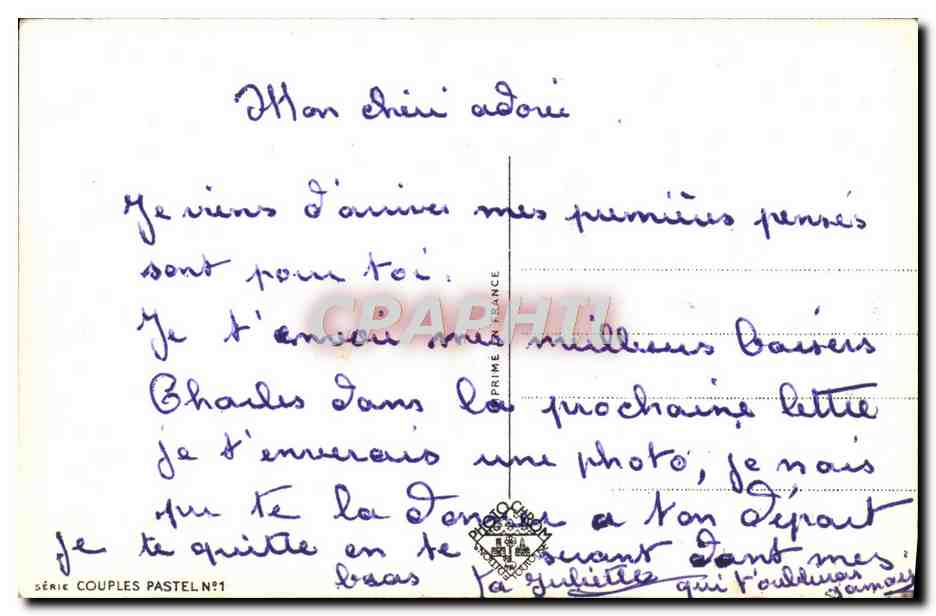 Mon chéri adoré
Je viens d'arriver mes premières pensés
sont pour toi.
Je t'envoie mes meilleurs baisers
Charles dans la prochaine lettre
je t'enverais une photo, je nais
pu te la donner a ton départ
Je te quitte en te serrant dant mes
bras ta Juliette qui t'oublieras jamais
IMPRIMÉ EN FRANCE
CPAPHIL
PHOTOCHROM
TOULOUSE
SÉRIE COUPLES PASTEL Nº1